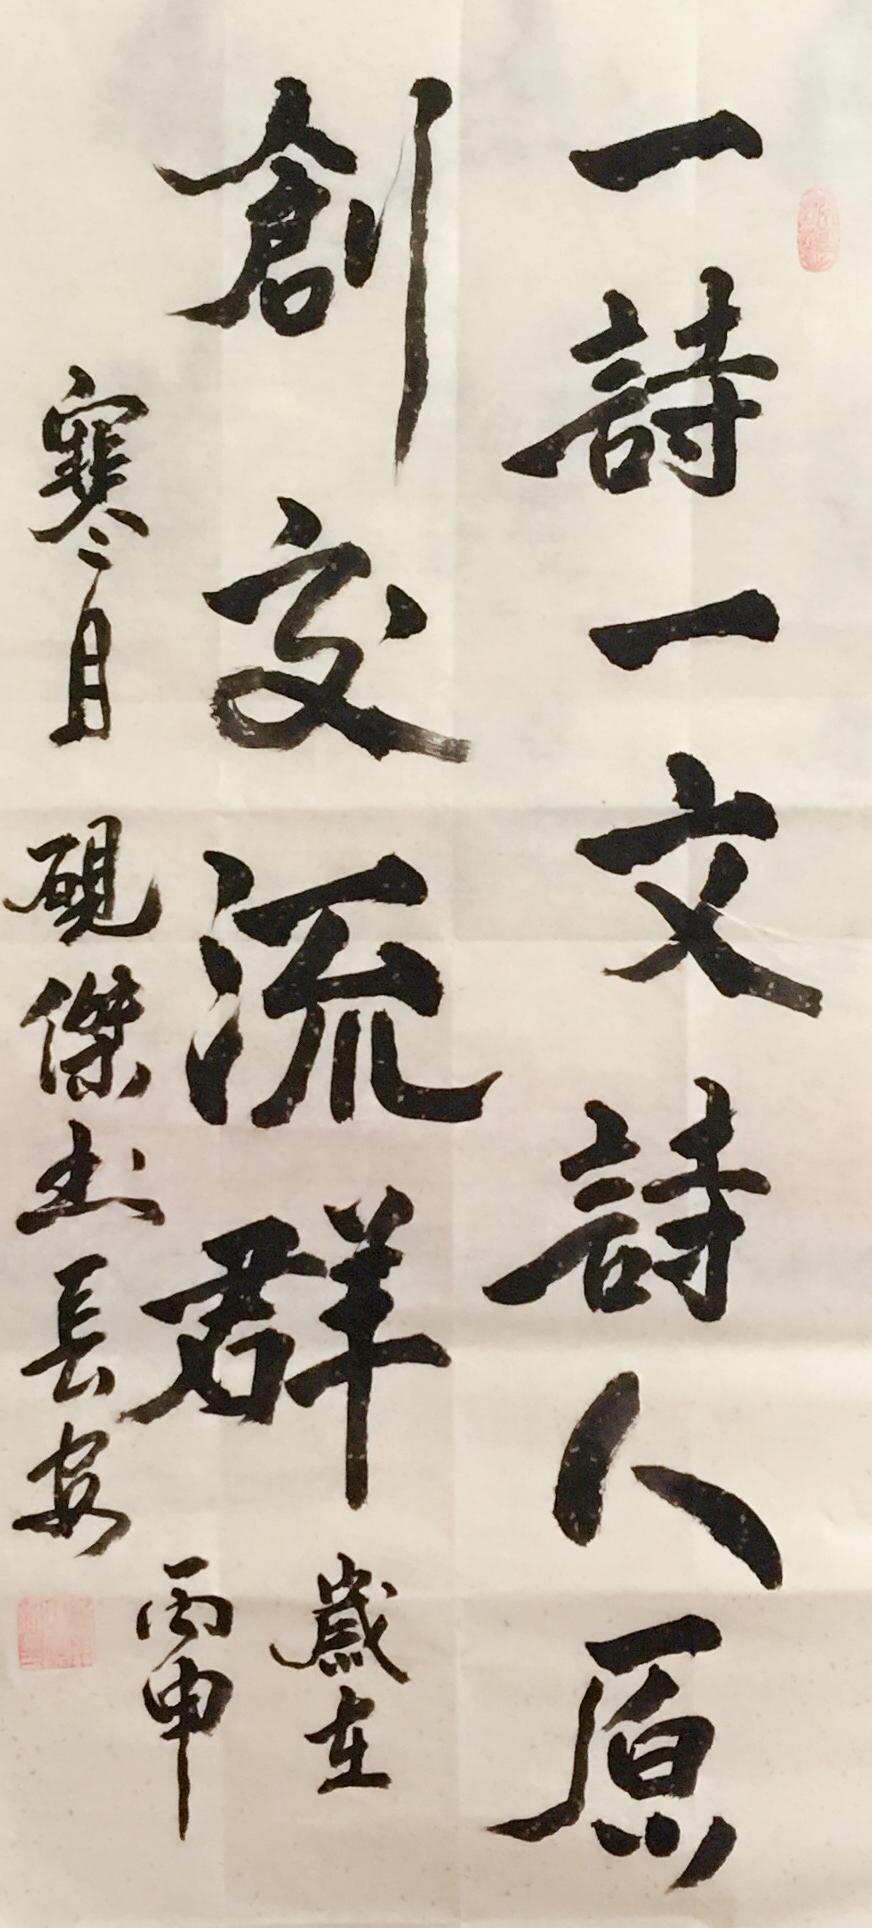 一詩一文詩人原
創交流群
歲在
丙申
寒月 硯傑书長安